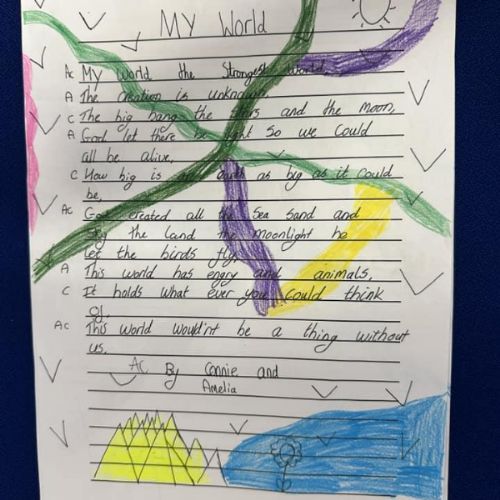 My World
Ac My World the Strongest World,
A The creation is unknown
C The big bang the stars and the moon,
A God let there be light So we could
all be alive,
C How big is our earth as big as it could
be,
Ac God created all the Sea Sand and
Sky the Land the moonlight he
let the birds fly,
A This world has engry and animals,
C It holds what ever you could think
of,
Ac This world would'nt be a thing without
us.
Ac By Connie and
Amelia